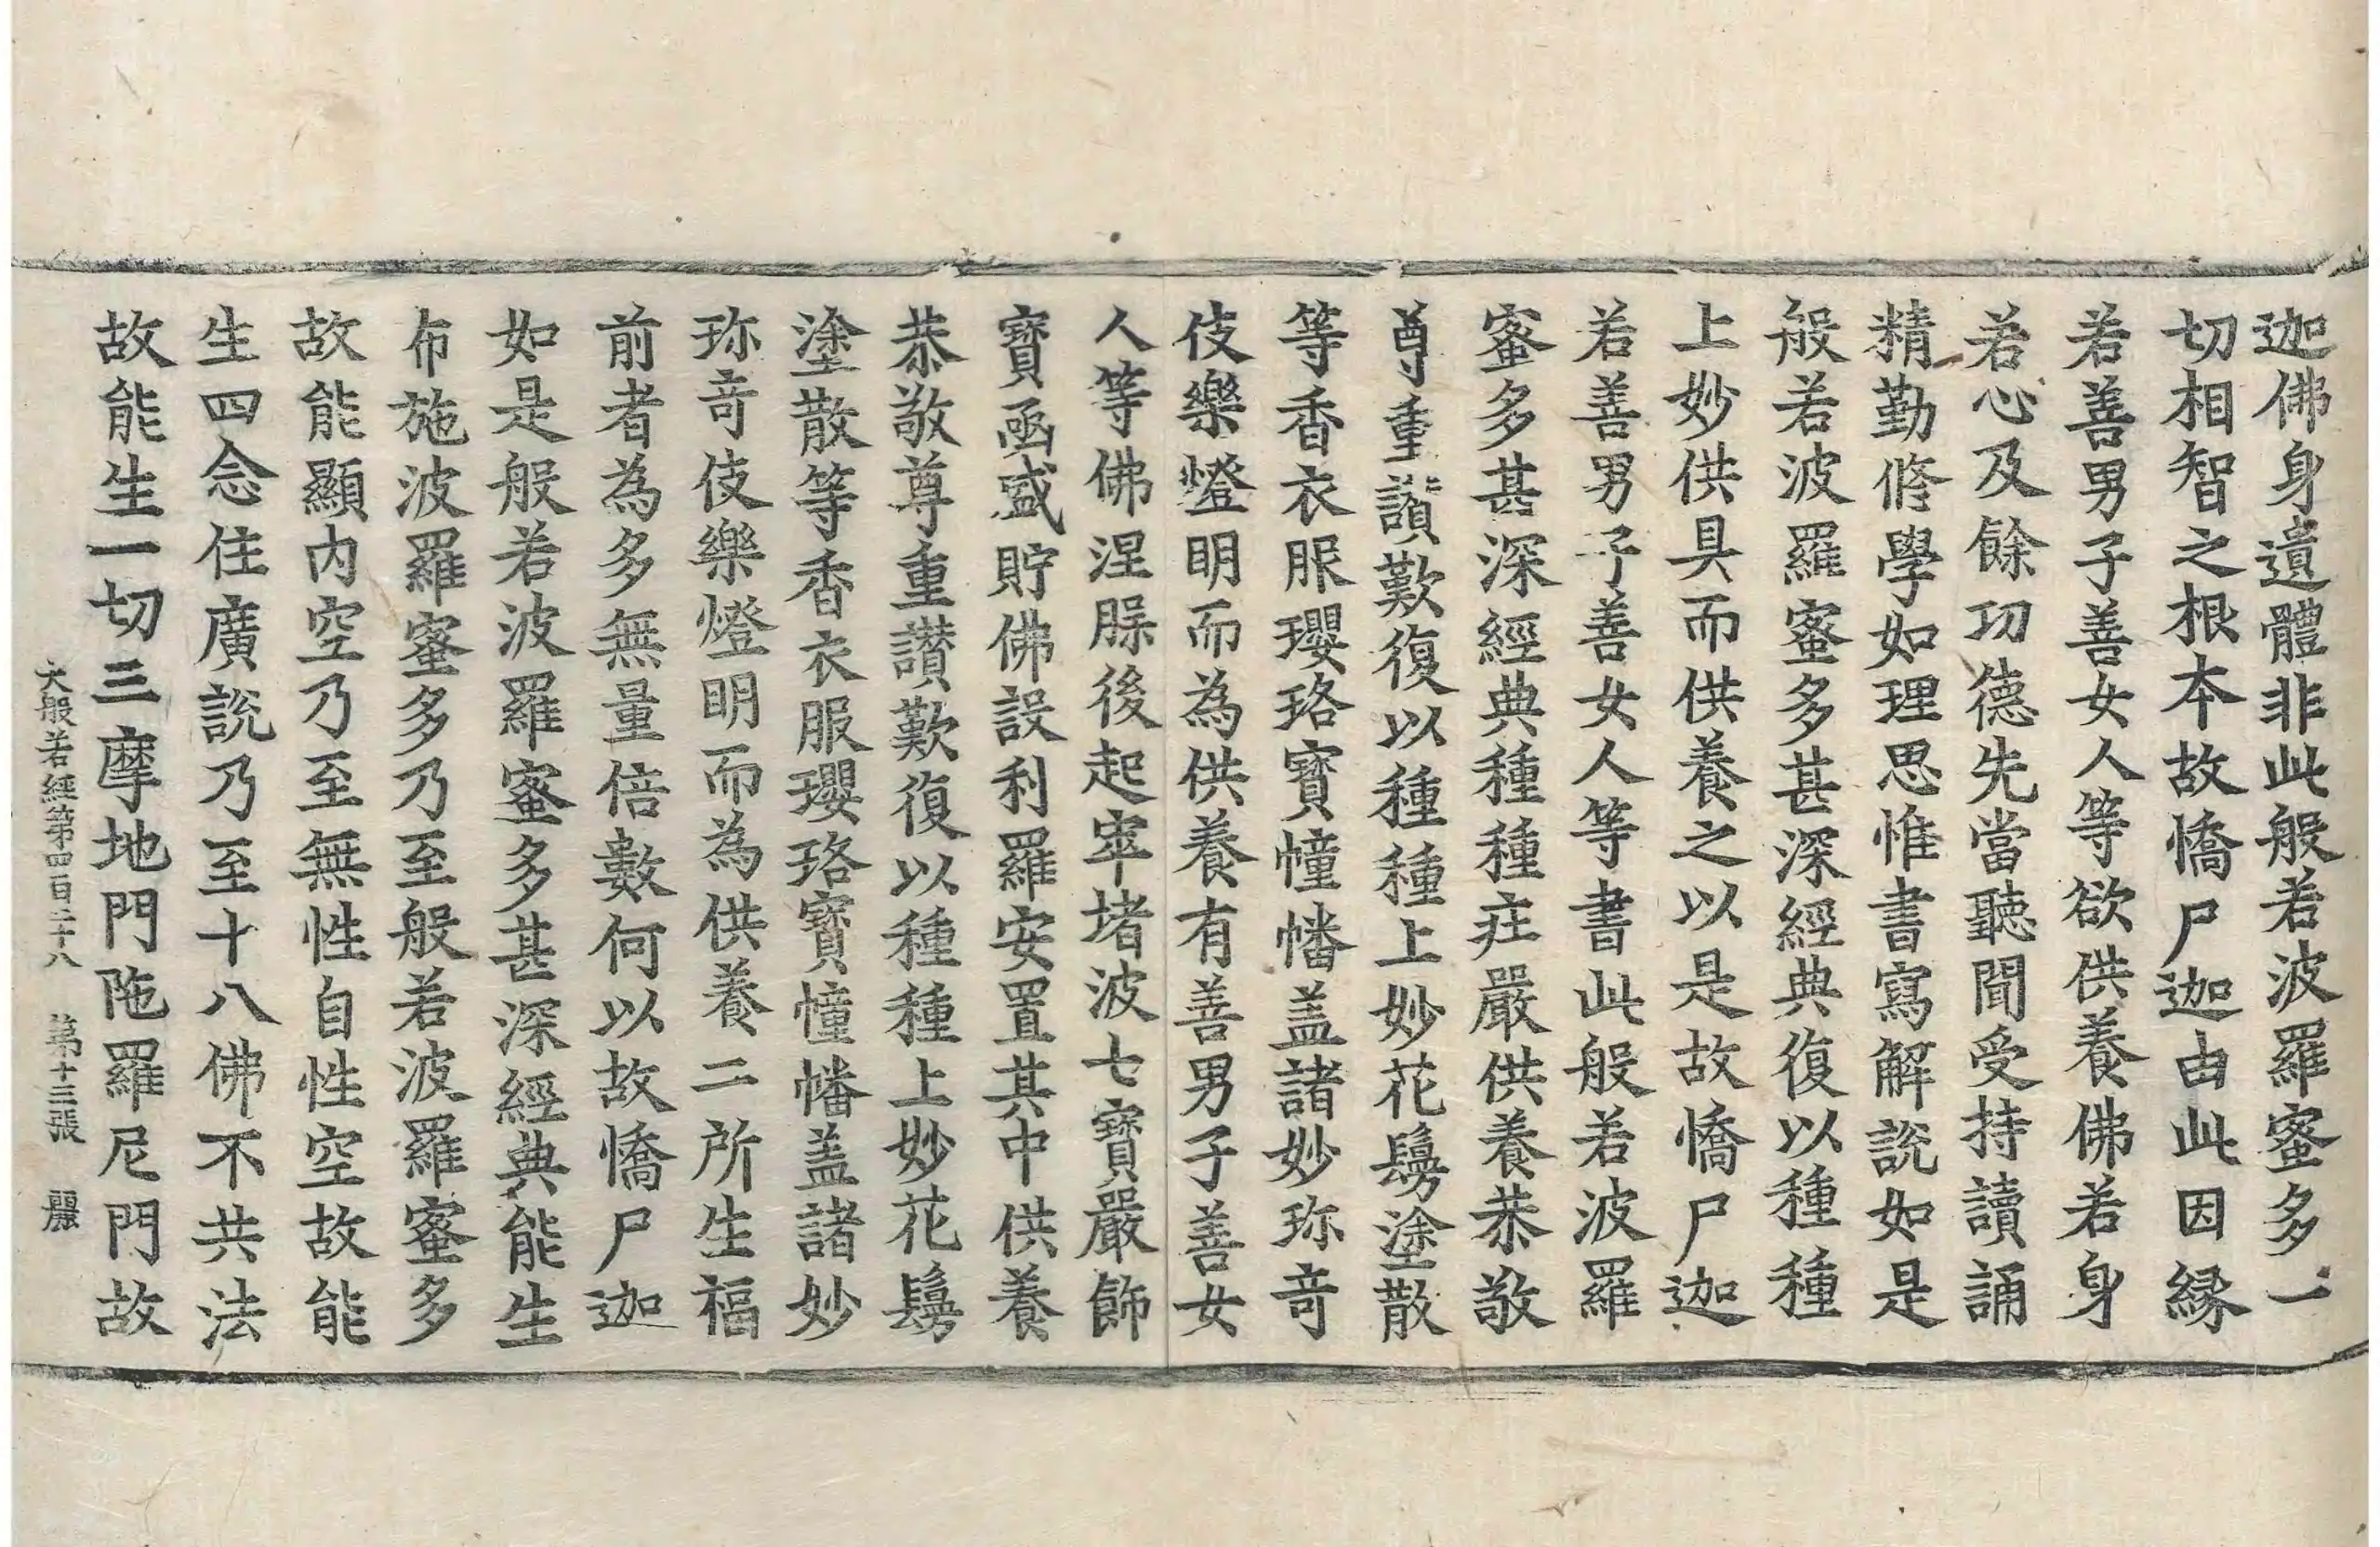 迦佛身遺體非此般若波羅蜜多一
切相智之根本故憍尸迦由此因緣
若善男子善女人等欲供養佛若身
若心及餘功德先當聽聞受持讀誦
精勤修學如理思惟書寫解說如是
般若波羅蜜多甚深經典復以種種
上妙供具而供養之以是故憍尸迦
若善男子善女人等書此般若波羅
蜜多甚深經典種種莊嚴供養恭敬
尊重讚歎復以種種上妙花鬘塗散
等香衣服瓔珞寶幢幡盖諸妙珎奇
伎樂燈明而為供養有善男子善女
人等佛涅槃後起窣堵波七寶嚴飾
寶函盛貯佛設利羅安置其中供養
恭敬尊重讚歎復以種種上妙花鬘
塗散等香衣服瓔珞寶幢幡盖諸妙
珎奇伎樂燈明而為供養二所生福
前者為多無量倍數何以故憍尸迦
如是般若波羅蜜多甚深經典能生
布施波羅蜜多乃至般若波羅蜜多
故能顯內空乃至無性自性空故能
生四念住廣說乃至十八佛不共法
故能生一切三摩地門陁羅尼門故
大般若經第四百二十八 第十三張 麗